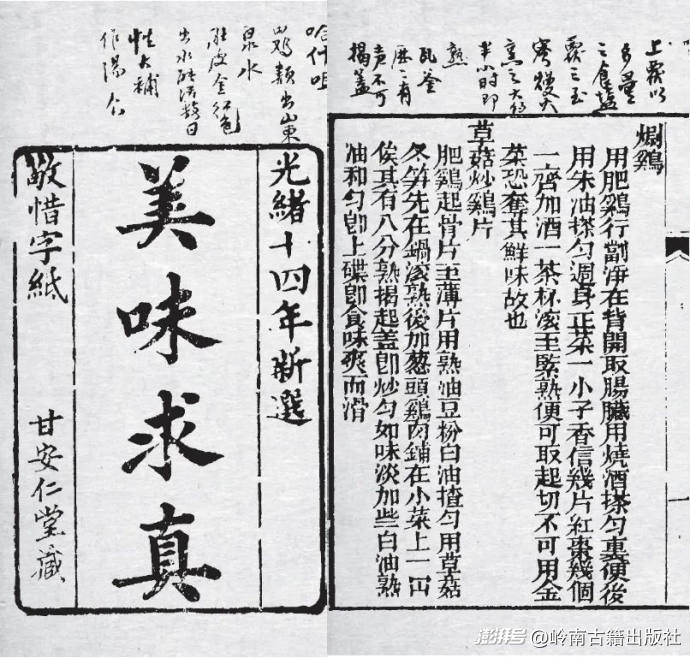 哈什
出山東
泉水
皮金紅色
出水能活数日
性大補
作湯
光緒十四年新選
美味求真
敬惜字紙
甘安仁堂藏
上霧以
多量
之食盐
慢火
之大約
半小時即
熟
瓦釜
不可
揭盖
焗鷄
用肥鷄行劏淨在背開取腸臟用燒酒搽勻裏便後
用朱油搽勻週身正菜一小子香信幾片紅棗幾個
一齊加酒一茶杯滚至緊熟便可取起切不可用金
菜恐奪其鮮味故也
草菇炒鷄片
肥鷄起骨片至薄片用熟油豆粉白油揸勻用草菇
冬笋先在鍋滚熟後加葱頭鷄肉鋪在小菜上一冚
俟其有八分熟揭起盖即炒勻如味淡加些白油熟
油和勻即上碟即食味爽而滑
澎湃号@岭南古籍出版社